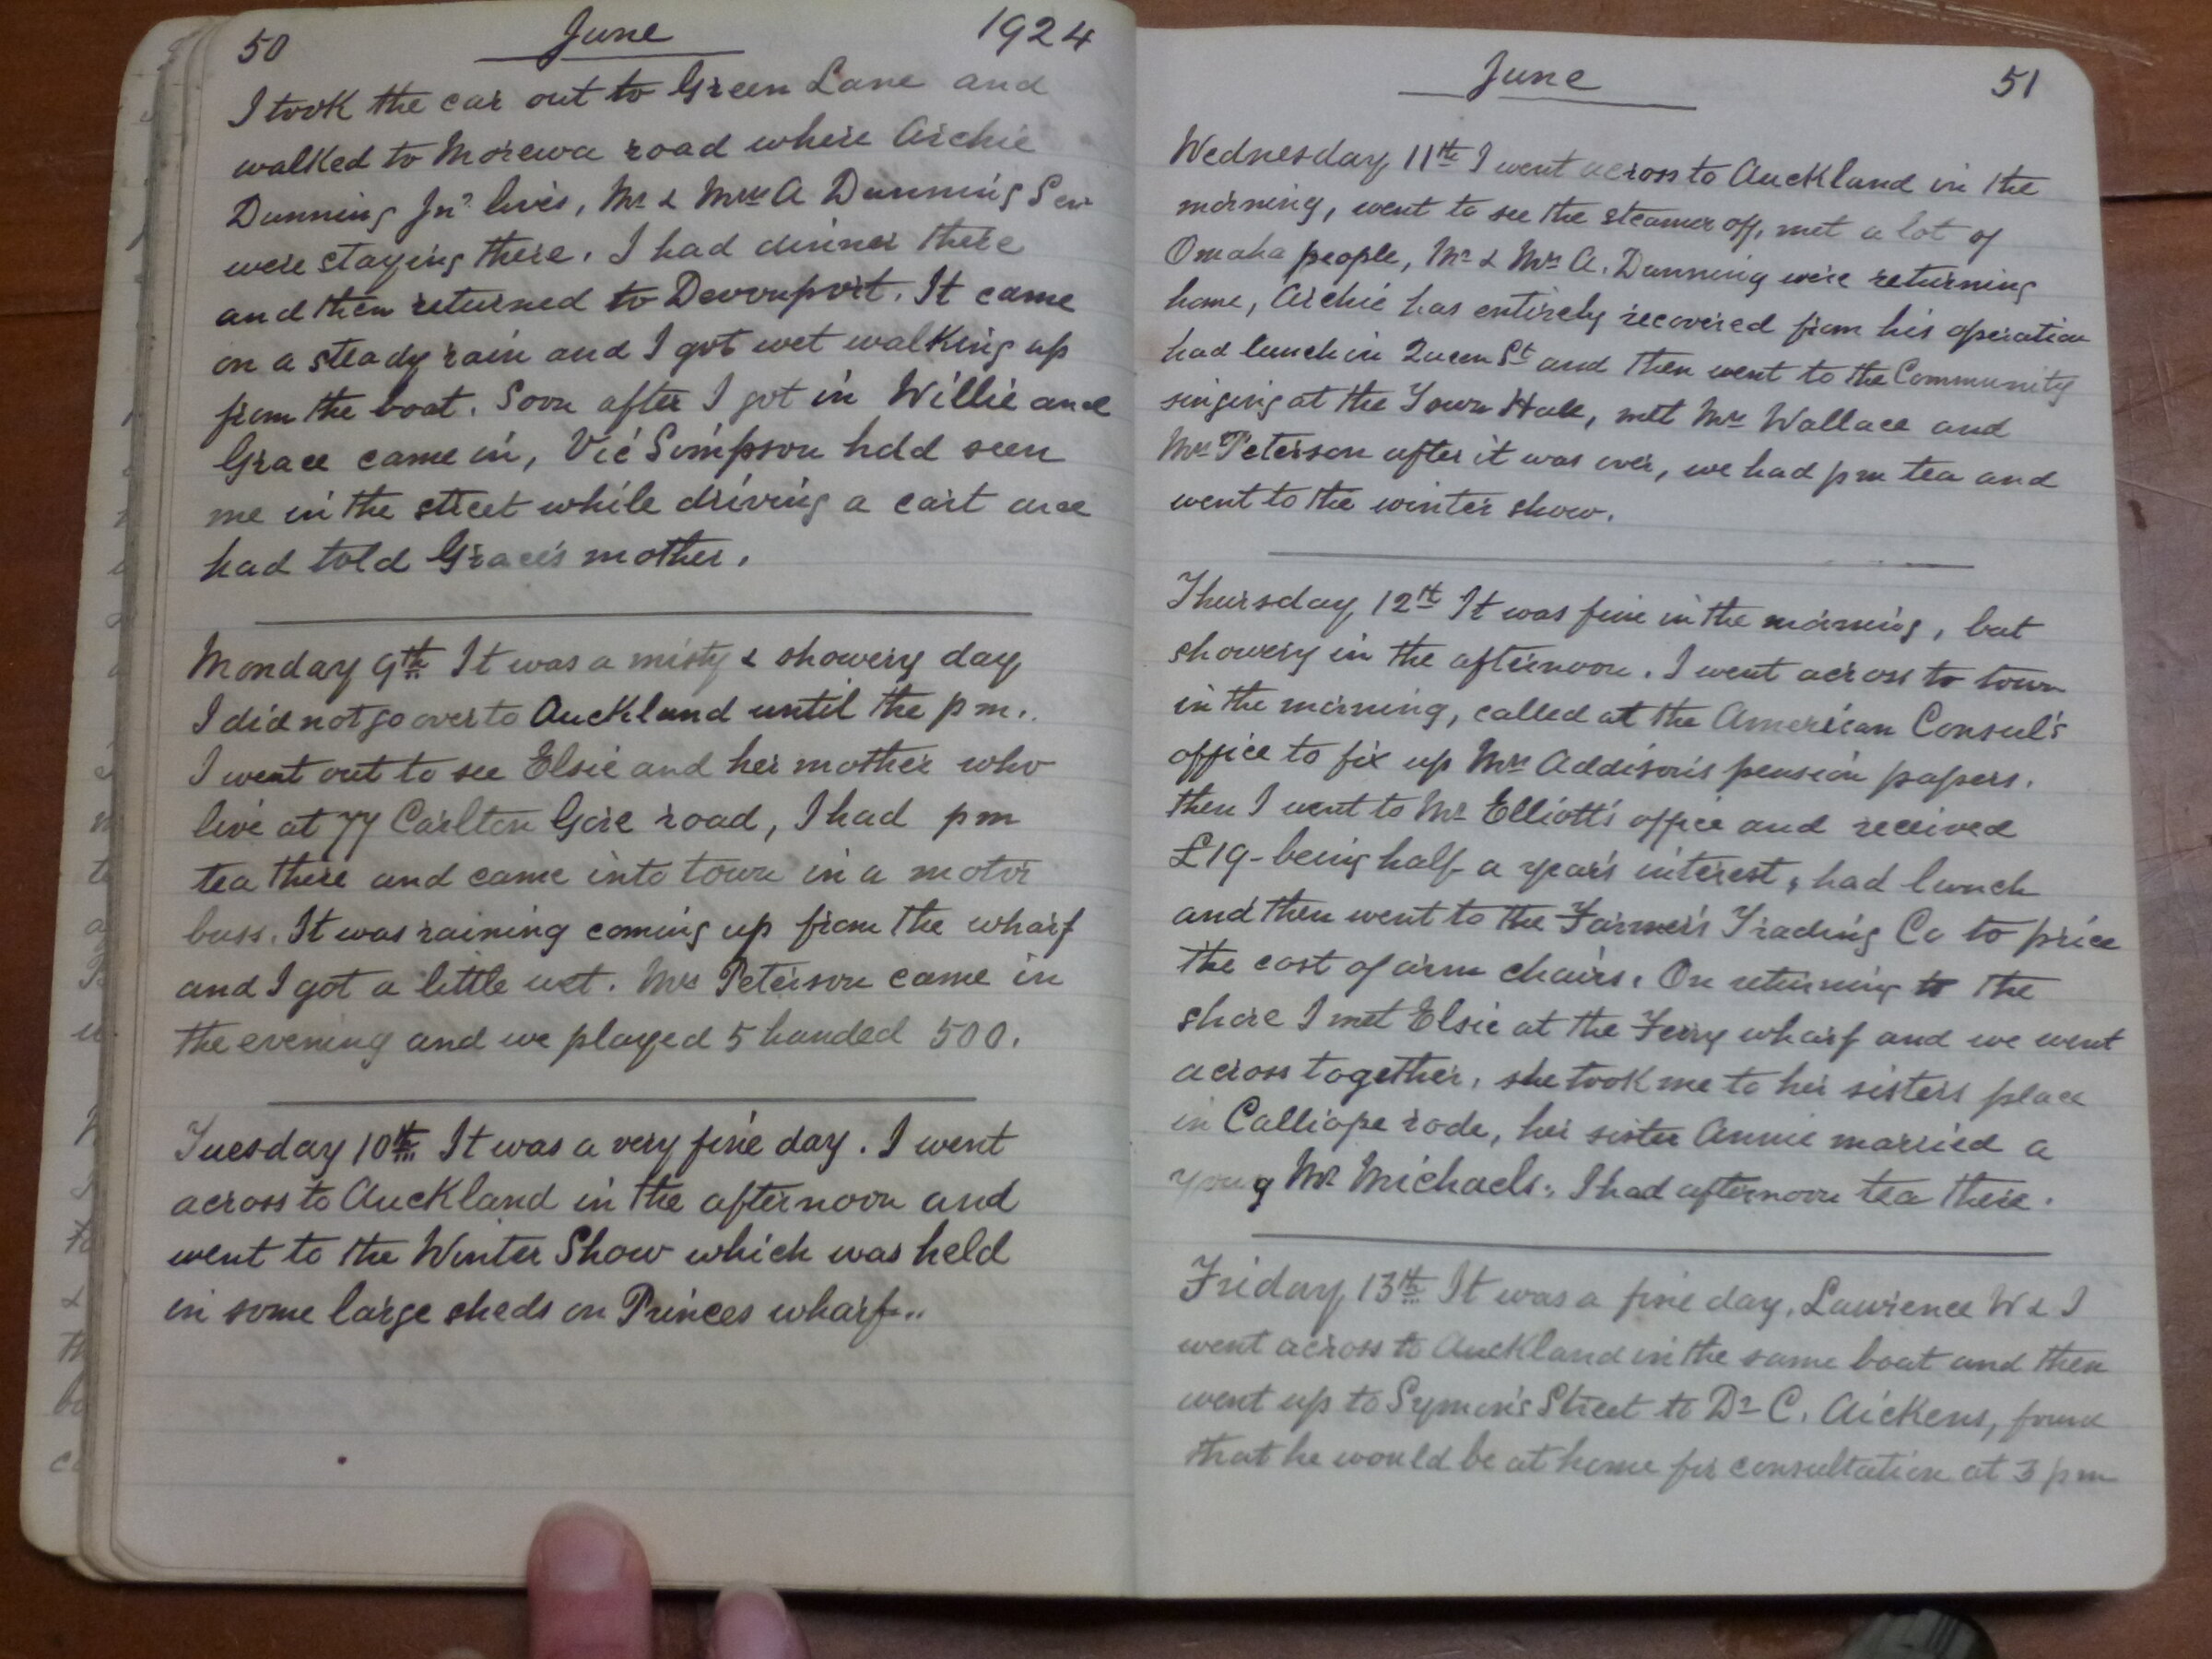 50 June 1924
I took the car out to Green Lane and
walked to Morewa road where Archie
Dunning Jnr lives, Mr & Mrs A Dunning Sen
were staying there. I had dinner there
and then returned to Devonport. It came
on a steady rain and I got wet walking up
from the boat. Soon after I got in Willie and
Grace came in, Vic Simpson hdd seen
me in the street while driving a cart and
had told Grace's mother.
Monday 9th It was a misty & showery day
I did not go over to Auckland until the pm.
I went out to see Elsie and her mother who
live at 77 Carlton Gore road, I had pm
tea there and came into town in a motor
buss. It was raining coming up from the wharf
and I got a little wet. Mrs Peterson came in
the evening and we played 5 handed 500.
Tuesday 10th It was a very fine day. I went
across to Auckland in the afternoon and
went to the Winter Show which was held
in some large sheds on Princes wharf..
June 51
Wednesday 11th I went across to Auckland in the
morning, went to see the steamer off, met a lot of
Omaha people, Mr & Mrs A. Dunning were returning
home, Archie has entirely recovered from his operation
had lunch in Queen St and then went to the Community
singing at the Town Hall, met Mrs Wallace and
Mrs Peterson after it was over, we had pm tea and
went to the winter show.
Thursday 12th It was fine in the morning, but
showery in the afternoon. I went across to town
in the morning, called at the American Consul's
office to fix up Mrs Addison's pension papers.
then I went to Mr Elliott's office and received
£19- being half a year's interest, had lunch
and then went to the Farmer's Trading Co to price
the cost of arm chairs. On returning to the
shore I met Elsie at the Ferry wharf and we went
across together, she took me to her sisters place
in Calliope rode, her sister Annie married a
young Mr Michaels. I had afternoon tea there.
Friday 13th It was a fine day. Lawrence W & I
went across to Auckland in the same boat and then
went up to Symon's Street to Dr C. Aickens, found
that he would be at home for consultation at 3 pm